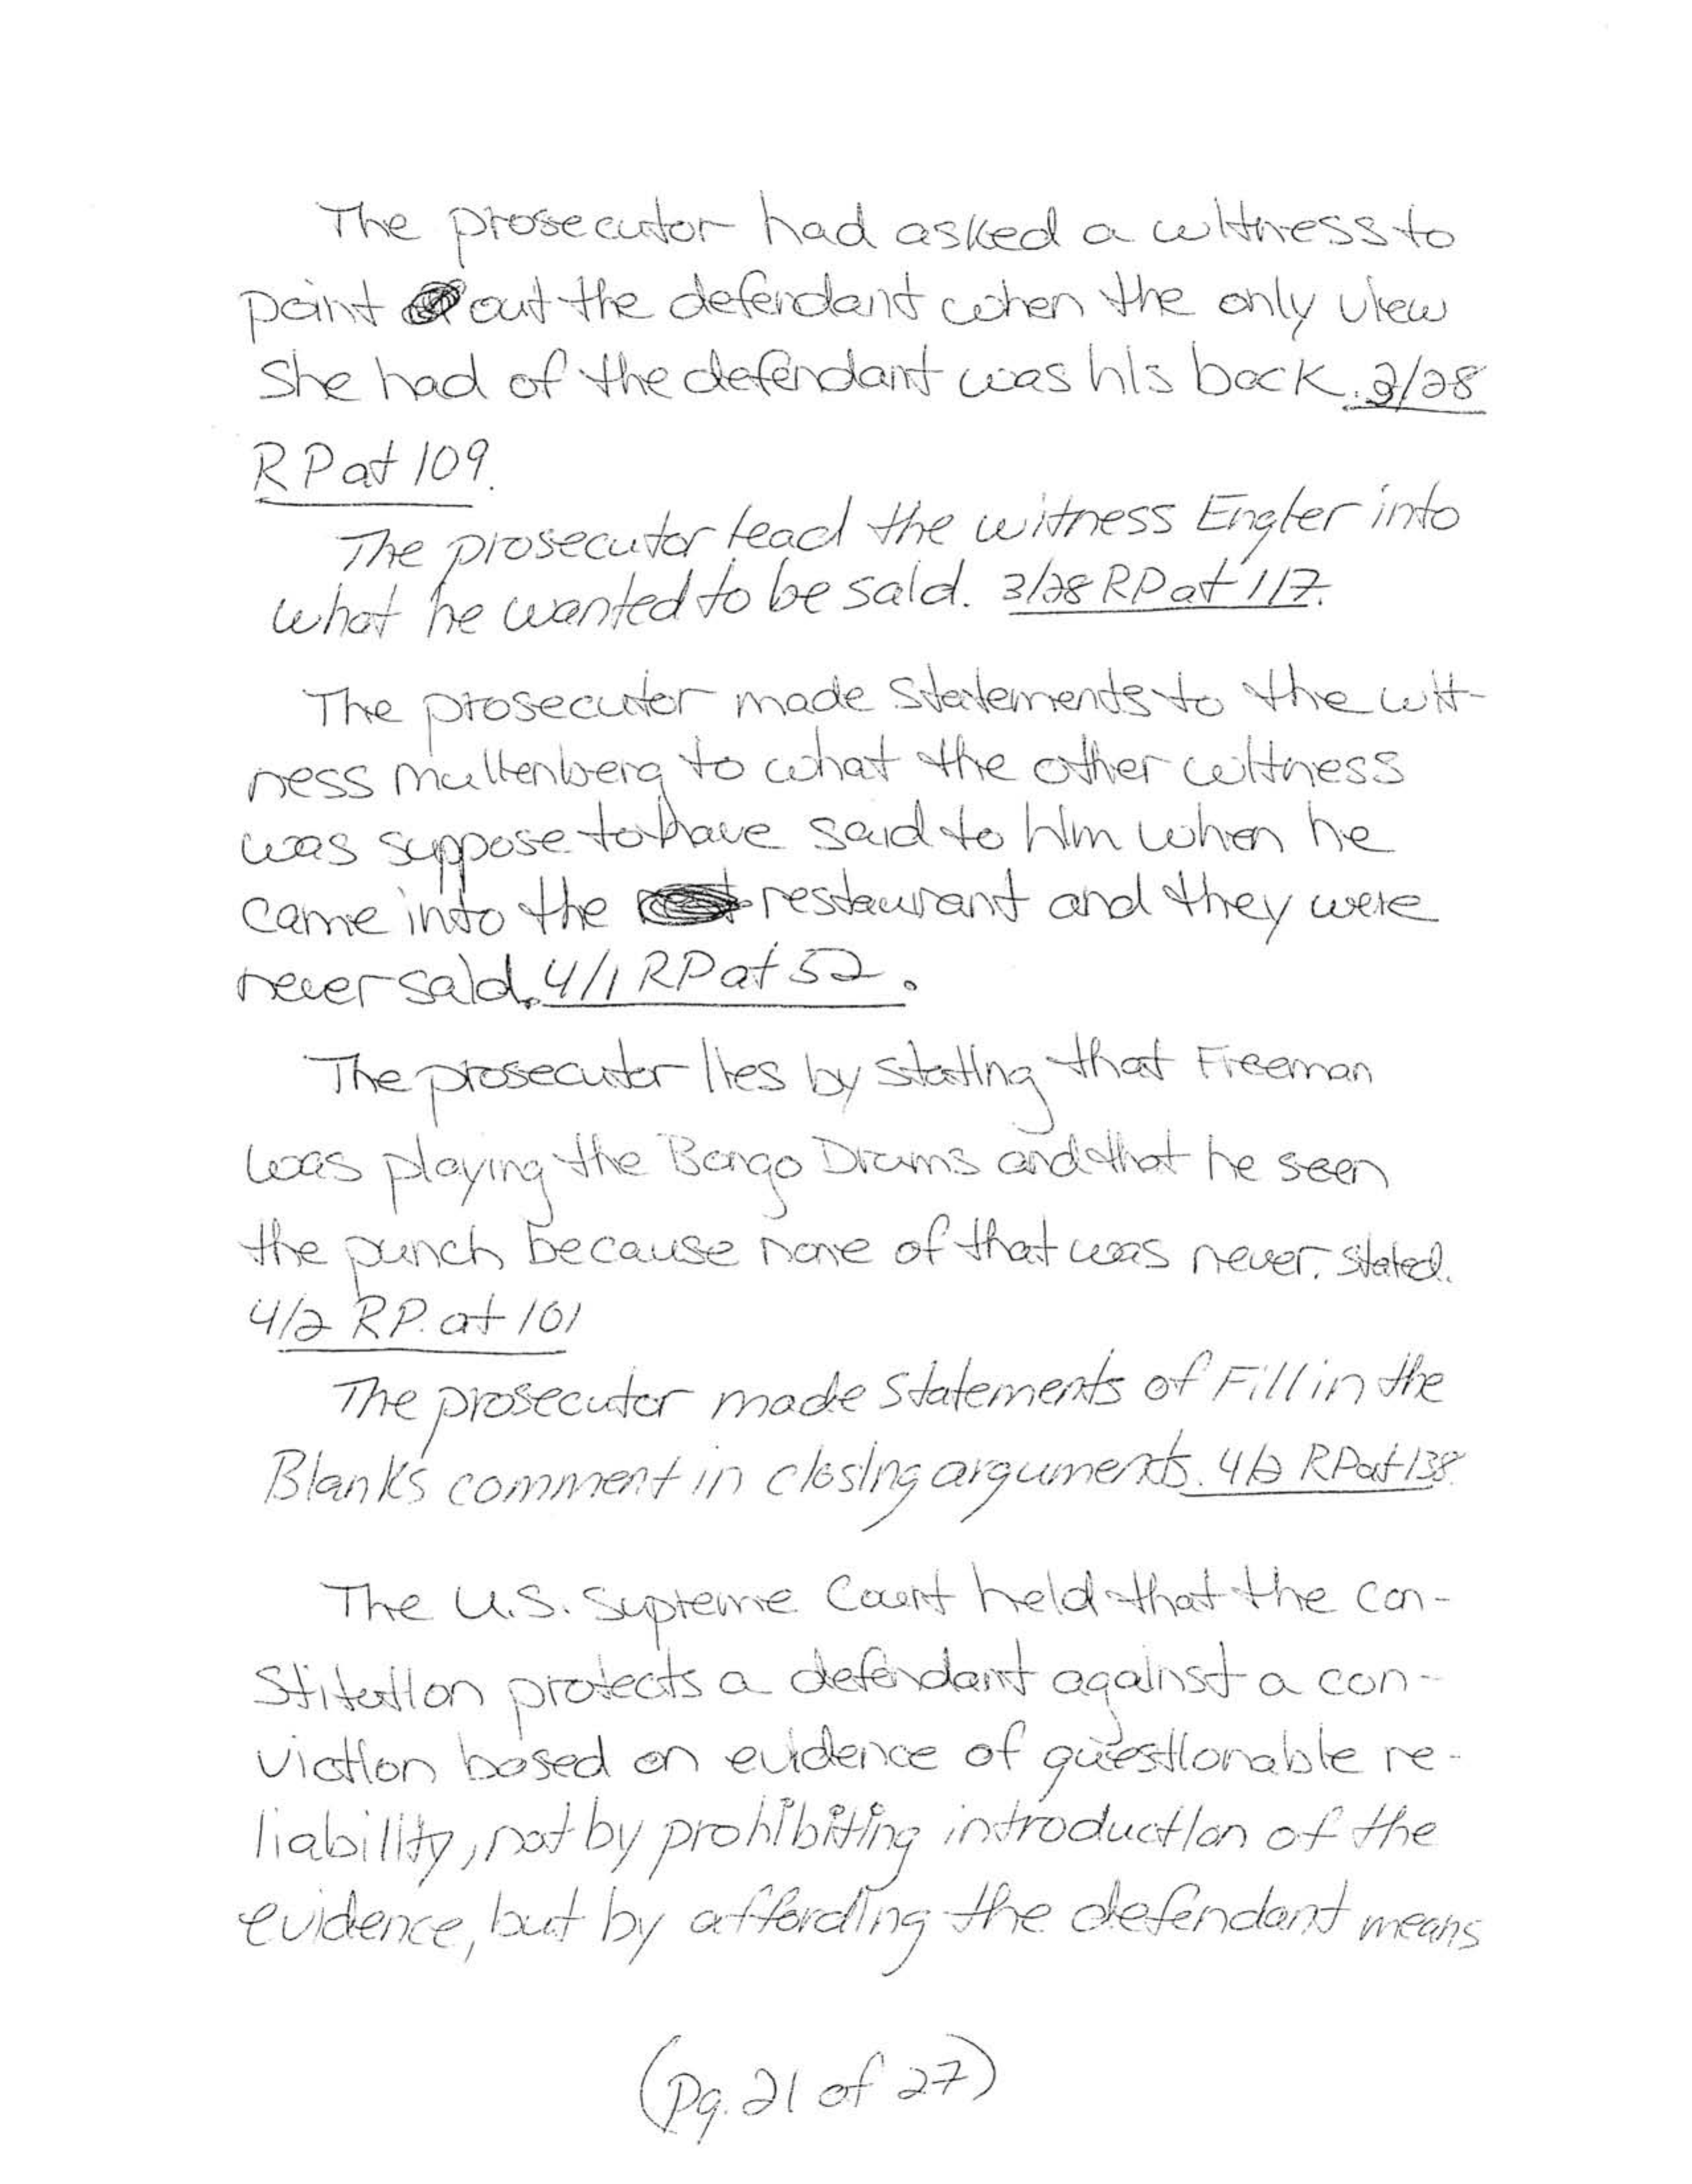 The prosecutor had asked a witness to
point out the defendant when the only view
she had of the defendant was his back. 3/28
RP at 109.
The prosecutor lead the witness Engler into
what he wanted to be said. 3/28 RP at 117.
The prosecutor made statements to the wit-
ness Multenberg to what the other witness
was suppose to have said to him when he
came into the restaurant and they were
never said. 4/1 RP at 52.
The prosecutor lies by stating that Freeman
was playing the Bongo Drums and that he seen
the punch because none of that was never stated.
4/2 RP. at 101
The prosecutor made statements of Fill in the
Blanks comment in closing arguments. 4/2 RP at 138.
The U.S. Supreme Court held that the con-
stitution protects a defendant against a con-
viction based on evidence of questionable re-
liability, not by prohibiting introduction of the
evidence, but by affording the defendant means
(pg. 21 of 27)